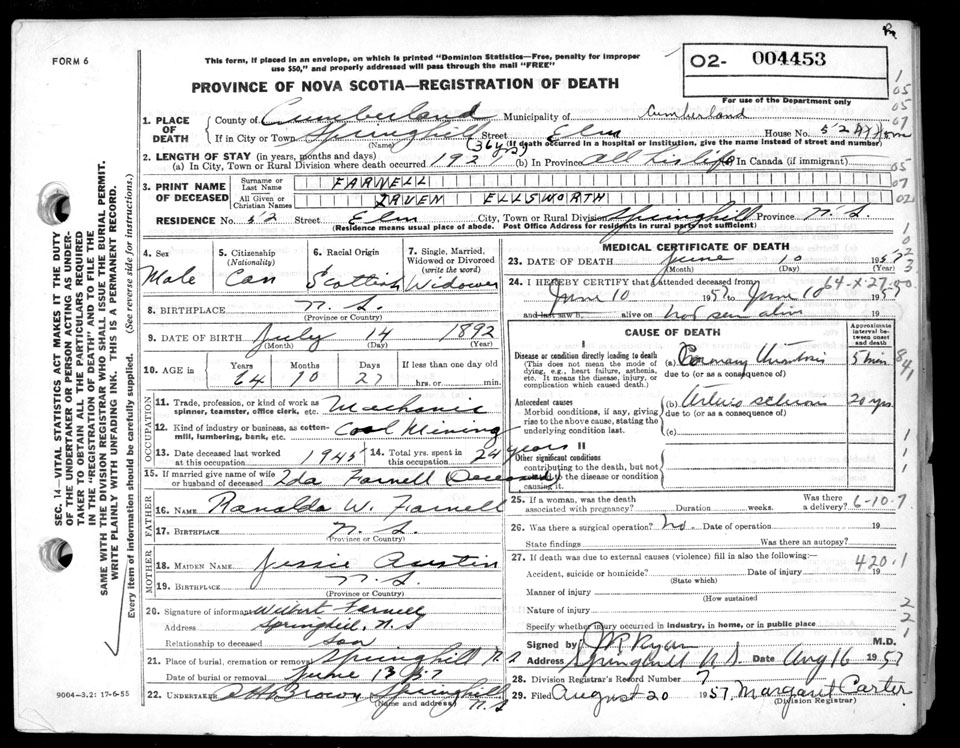 FORM 6
This form, if placed in an envelope, on which is printed "Dominion Statistics—Free, penalty for improper
use $50," and properly addressed will pass through the mail "FREE"
PROVINCE OF NOVA SCOTIA—REGISTRATION OF DEATH
O2- 004453
For use of the Department only
1. PLACE OF DEATH
County of Cumberland Municipality of Cumberland
If in City or Town Springhill Street Elm House No. 52
(Name) (36 yrs) (If death occurred in a hospital or institution, give the name instead of street and number)
2. LENGTH OF STAY (in years, months and days)
(a) In City, Town or Rural Division where death occurred 192 (b) In Province All his life In Canada (if immigrant)
3. PRINT NAME OF DECEASED
Surname or Last Name FARNELL
All Given or Christian Names IRVEN ELLSWORTH
RESIDENCE No. 52 Street Elm City, Town or Rural Division Springhill Province N.S.
(Residence means usual place of abode. Post Office Address for residents in rural parts not sufficient)
4. Sex Male
5. Citizenship (Nationality) Can
6. Racial Origin Scottish
7. Single, Married, Widowed or Divorced (write the word) Widower
8. BIRTHPLACE N.S.
(Province or Country)
9. DATE OF BIRTH July 14 1892
(Month) (Day) (Year)
10. AGE in Years Months Days If less than one day old
64 10 27 hrs. or min.
OCCUPATION
11. Trade, profession, or kind of work as spinner, teamster, office clerk, etc. Mechanic
12. Kind of industry or business, as cotton-mill, lumbering, bank, etc. Coal Mining
13. Date deceased last worked at this occupation 1945
14. Total yrs. spent in this occupation 24 years
15. If married give name of wife or husband of deceased Ida Farnell Deceased
FATHER
16. NAME Ranalda W. Farnell
17. BIRTHPLACE N.S.
(Province or Country)
MOTHER
18. MAIDEN NAME Jessie Austin
19. BIRTHPLACE N.S.
(Province or Country)
20. Signature of informant Wilbert Farnell
Address Springhill, N.S
Relationship to deceased Son
21. Place of burial, cremation or removal Springhill N.S
Date of burial or removal June 13 57
22. UNDERTAKER Brown Springhill N.S
(Name and address)
MEDICAL CERTIFICATE OF DEATH
23. DATE OF DEATH June 10 1957
(Month) (Day) (Year)
64-X-27-00
24. I HEREBY CERTIFY that I attended deceased from
June 10 1957 to June 10 1957
and last saw h alive on not seen alive 19
CAUSE OF DEATH
Approximate interval between onset and death
I
Disease or condition directly leading to death
(This does not mean the mode of dying, e.g., heart failure, asthenia, etc. It means the disease, injury, or complication which caused death.)
(a) Coronary Thrombosis 5 min
due to (or as a consequence of)
Antecedent causes
Morbid conditions, if any, giving rise to the above cause, stating the underlying condition last.
(b) Arterio sclerosis 20 yrs.
due to (or as a consequence of)
(c)
II
Other significant conditions
contributing to the death, but not related to the disease or condition causing it.
25. If a woman, was the death associated with pregnancy? Duration weeks. Was there a delivery?
6-10-7
26. Was there a surgical operation? no. Date of operation 19
State findings Was there an autopsy?
27. If death was due to external causes (violence) fill in also the following:
420.1
Accident, suicide or homicide? Date of injury 19
(State which)
Manner of injury
(How sustained)
Nature of injury
Specify whether injury occurred in industry, in home, or in public place
Signed by J.R. Ryan M.D.
Address Springhill N.S. Date Aug 16 1957
28. Division Registrar's Record Number 7
29. Filed August 20 1957 Margaret Carter
(Division Registrar)
SEC. 14—VITAL STATISTICS ACT MAKES IT THE DUTY
OF THE UNDERTAKER OR PERSON ACTING AS UNDER-
TAKER TO OBTAIN ALL THE PARTICULARS REQUIRED
IN THE "REGISTRATION OF DEATH" AND TO FILE THE
SAME WITH THE DIVISION REGISTRAR WHO SHALL ISSUE THE BURIAL PERMIT.
WRITE PLAINLY WITH UNFADING INK. THIS IS A PERMANENT RECORD.
Every item of information should be carefully supplied. (See reverse side for instructions.)
9004-3.2: 17-6-55